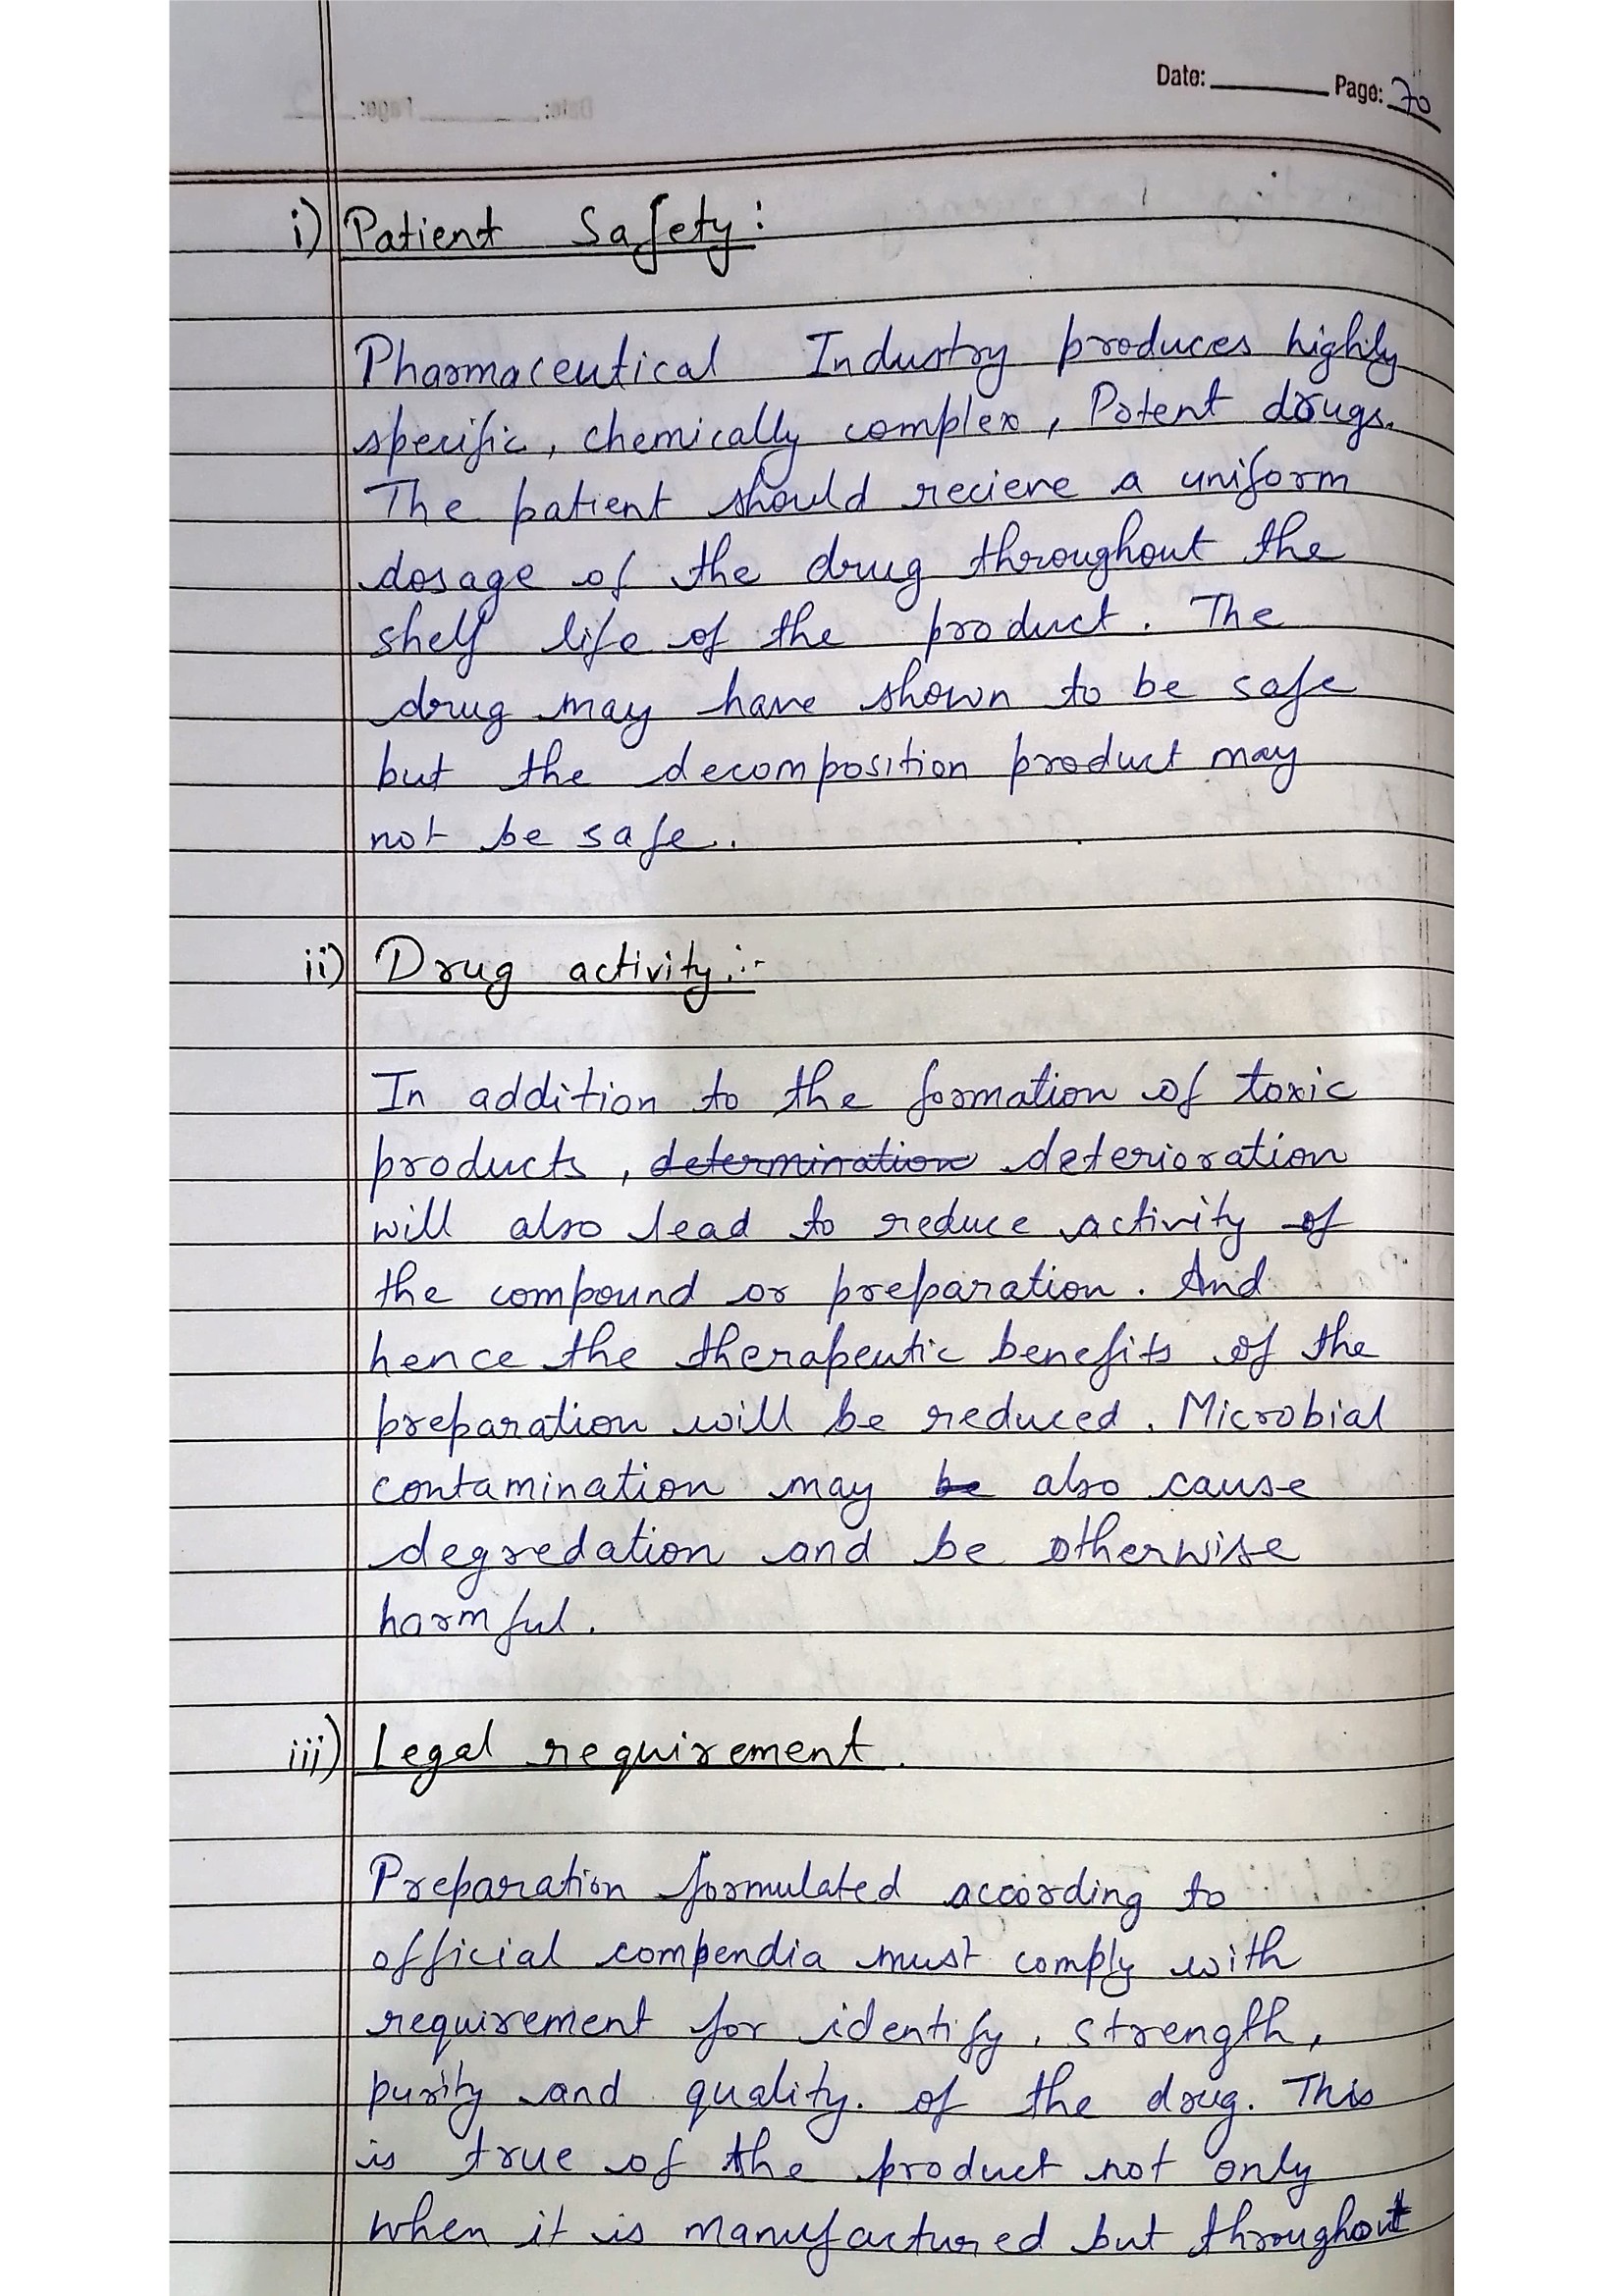 Date: Page: 70
i) Patient Safety:
Pharmaceutical Industry produces highly
specific, chemically complex, Potent drugs.
The patient should recieve a uniform
dosage of the drug throughout the
shelf life of the product. The
drug may have shown to be safe
but the decomposition product may
not be safe.
ii) Drug activity:-
In addition to the formation of toxic
products, determination deterioration
will also lead to reduce activity of
the compound or preparation. And
hence the therapeutic benefits of the
preparation will be reduced. Microbial
contamination may be also cause
degredation and be otherwise
harmful.
iii) Legal requirement.
Preparation formulated according to
official compendia must comply with
requirement for identify, strength,
purity and quality. of the drug. This
is true of the product not only
when it is manufactured but throughout